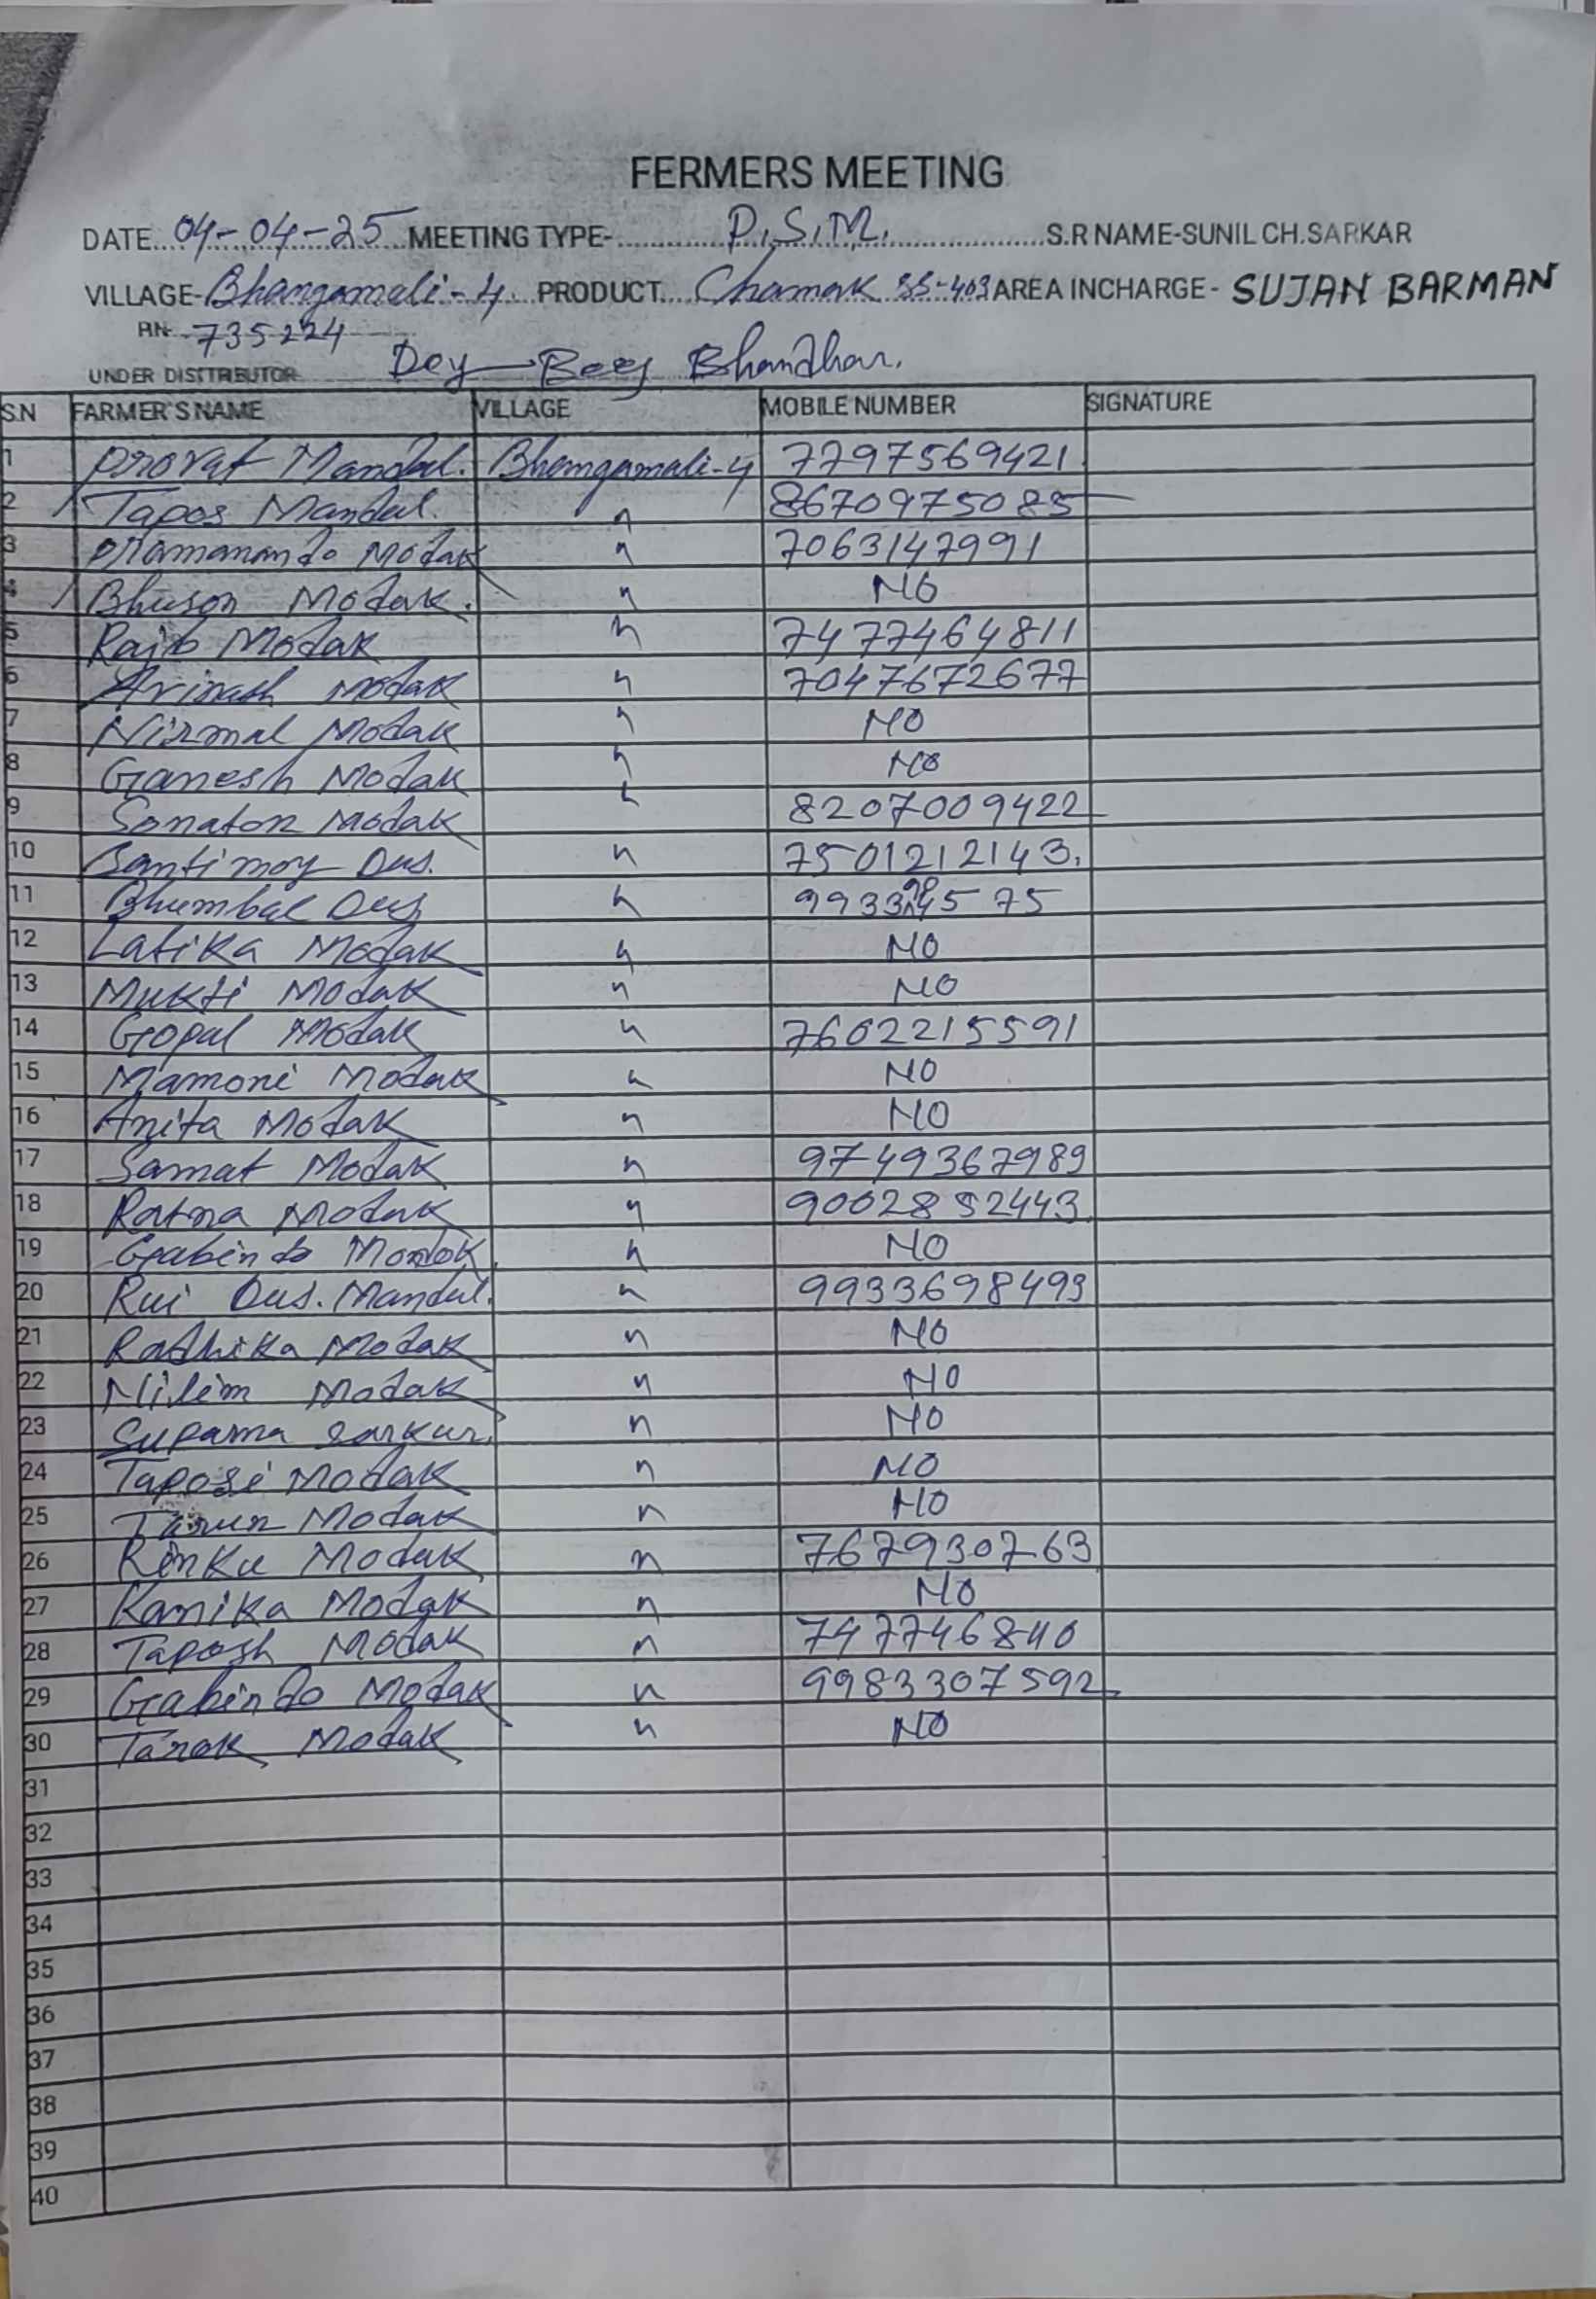 FERMERS MEETING
DATE 04-04-25 MEETING TYPE- P.S.M. S.R NAME-SUNIL CH.SARKAR
VILLAGE- Bhangamali-4 PRODUCT Chamak SS-403 AREA INCHARGE- SUJAN BARMAN
735224
UNDER DISTTRIBUTOR Dey Beej Bhandhar.
S.N FARMER'S NAME VILLAGE MOBILE NUMBER SIGNATURE
1 Provat Mandal. Bhamgamali-4 7797569421
2 Tapos Mandal. " 8670975085
3 Pramanando Modak " 7063147991
4 Bhuson Modak. " NO
5 Rajib Modak " 7477464811
6 Avinash Modak " 7047672677
7 Nirmal Modak " NO
8 Ganesh Modak " NO
9 Sonaton Modak " 8207009422
10 Santimoy Das. " 7501212143.
11 Bhumbal Das "
12 Latika Modak " NO
13 Mukti Modak " NO
14 Gopal Modak " 7602215591
15 Mamoni Modak " NO
16 Anita Modak " NO
17 Samat Modak " 9749367989
18 Ratna Modak " 9002852443
19 Gabindo Modok " NO
20 Rui Das. Mandal. " 9933698493
21 Radhika Modak " NO
22 Nilim Modak " NO
23 Suparna Sarkar. " NO
24 Taposi Modak " NO
25 Tarun Modak " NO
26 Rinku Modak " 7679930763
27 Kanika Modak " NO
28 Taposh Modak " 7477746840
29 Gabindo Modak " 9983307592
30 Tarak Modak " NO
31
32
33
34
35
36
37
38
39
40